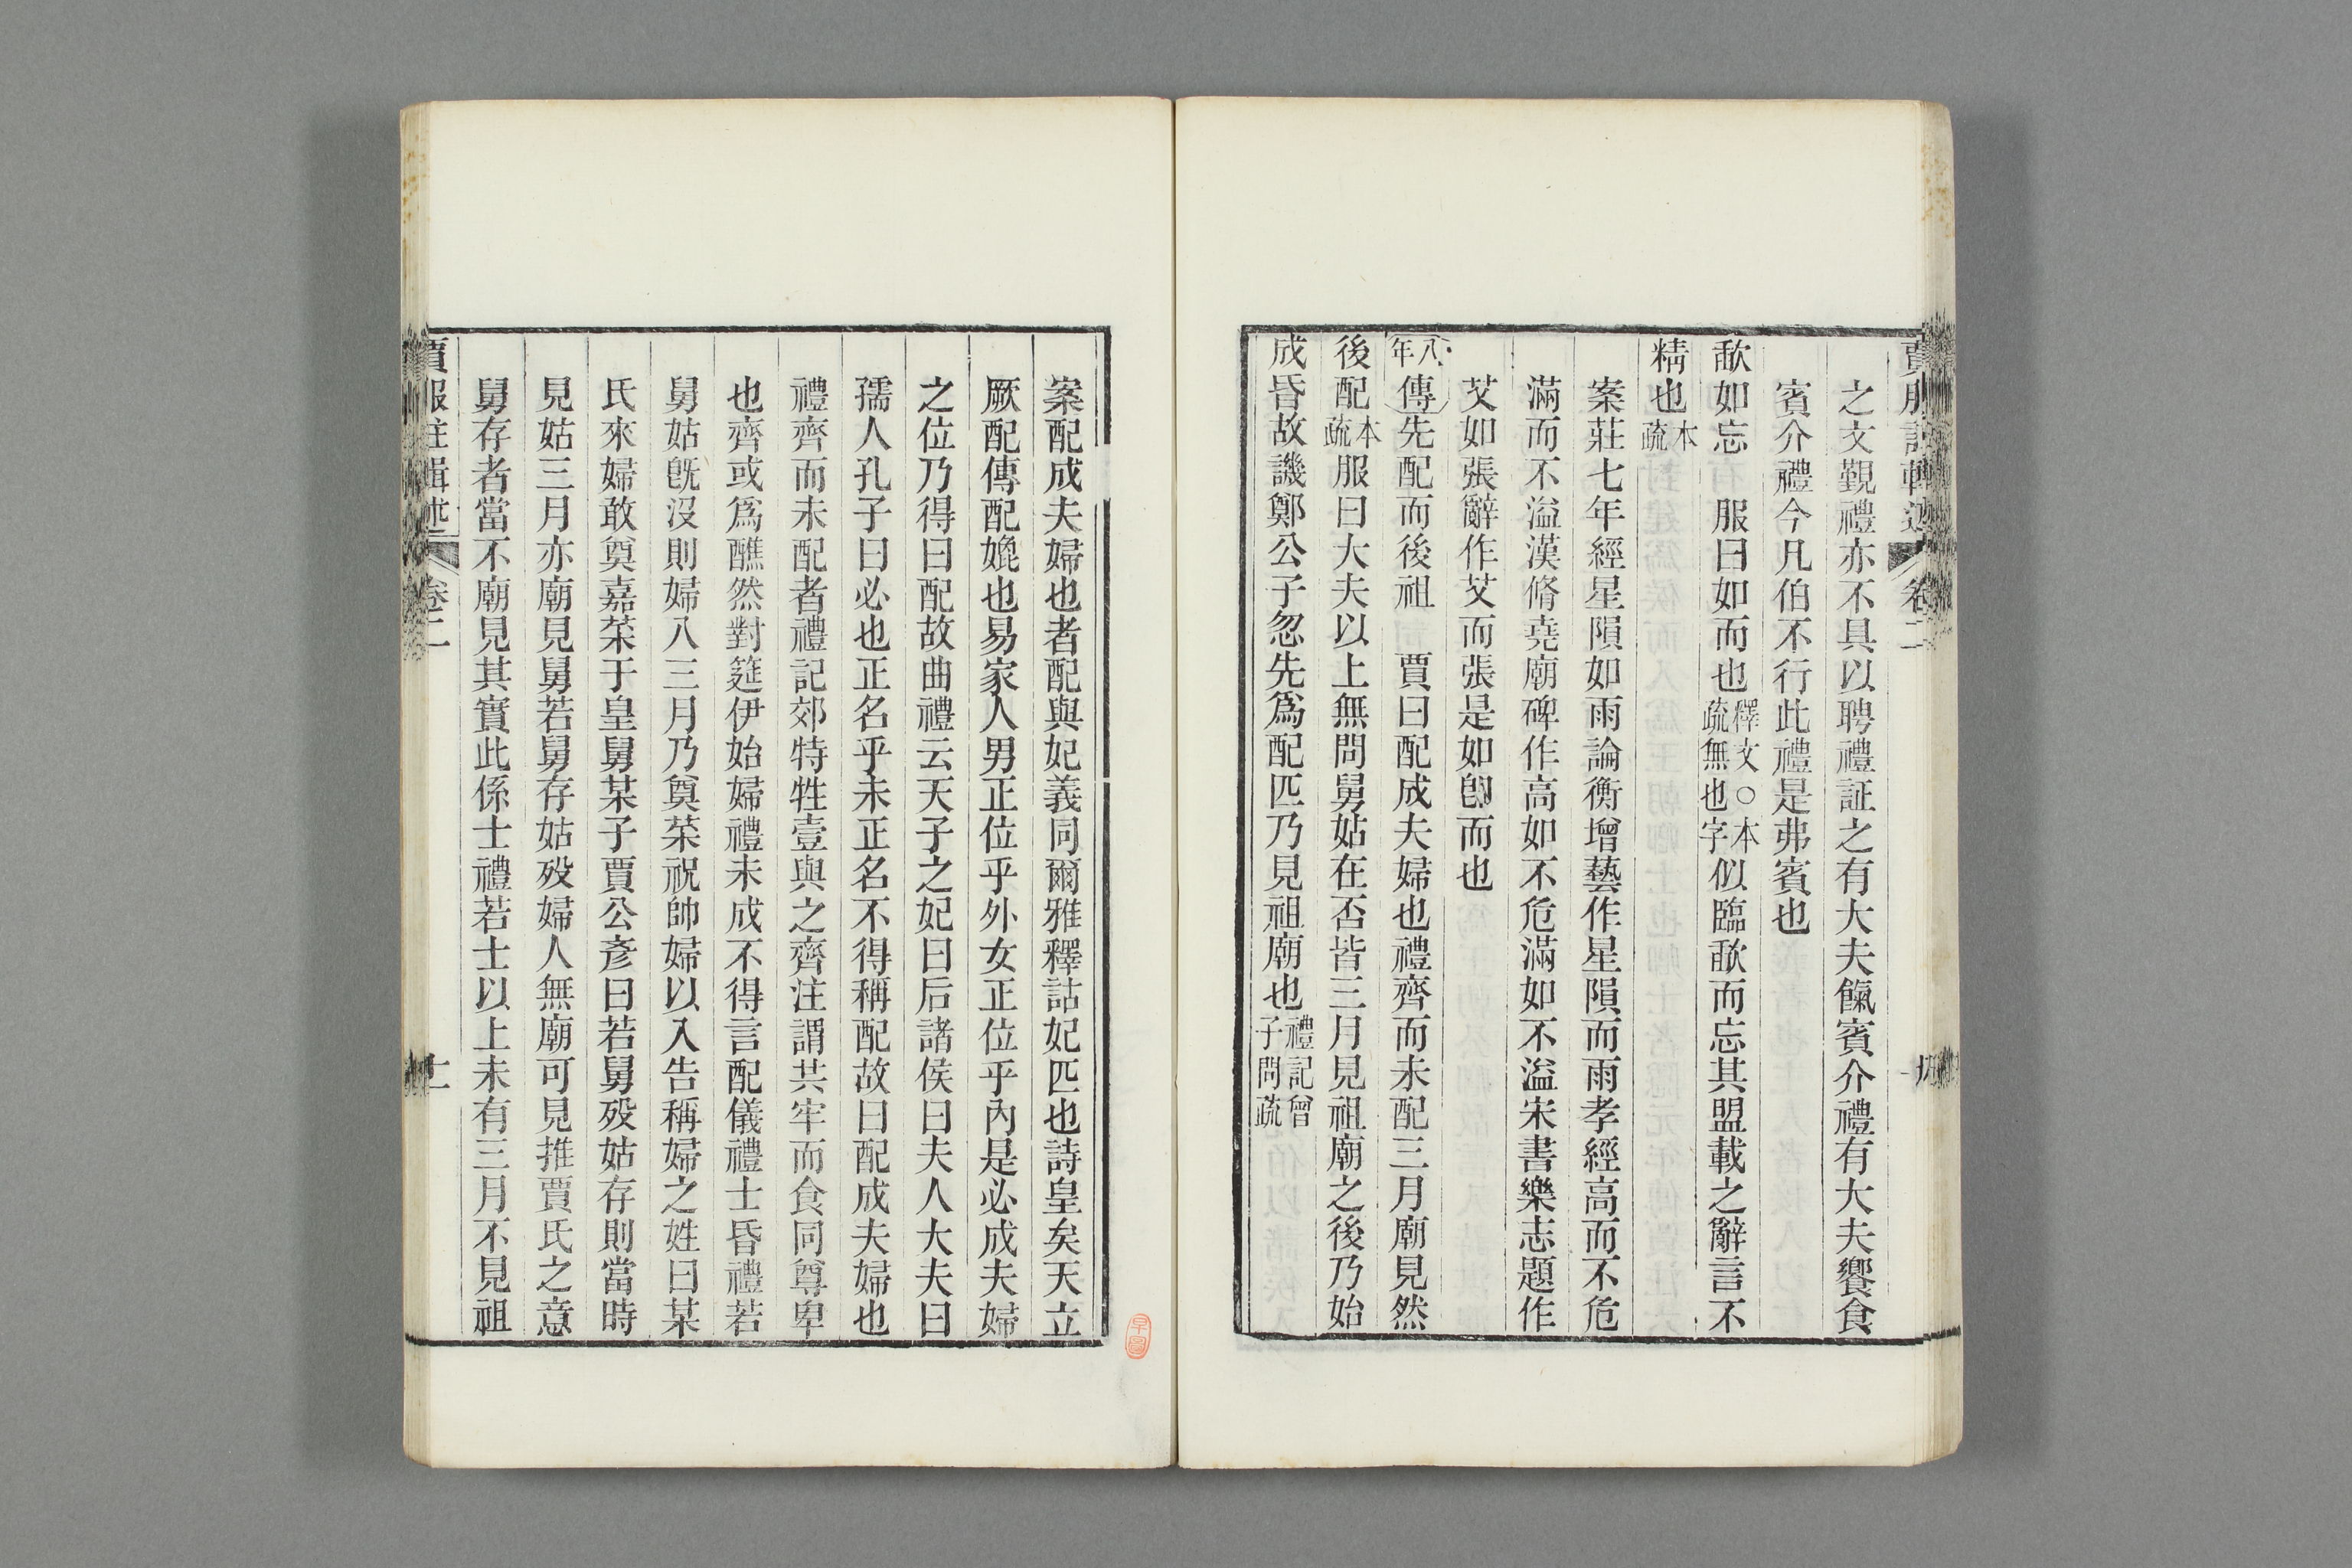 之文覲禮亦不具以聘禮証之有大夫餼賓介禮有大夫饗食
賓介禮今凡伯不行此禮是弗賓也
歃如忘　服曰如而也釋文○本疏無也字似臨歃而忘其盟載之辭言不
精也本疏
案莊七年經星隕如雨論衡增藝作星隕而雨孝經高而不危
滿而不溢漢脩堯廟碑作高如不危滿如不溢宋書樂志題作
艾如張辭作艾而張是如卽而也
八年傳先配而後祖　賈曰配成夫婦也禮齊而未配三月廟見然
後配本疏服曰大夫以上無問舅姑在否皆三月見祖廟之後乃始
成昏故譏鄭公子忽先爲配匹乃見祖廟也禮記曾子問疏
案配成夫婦也者配與妃義同爾雅釋詁妃匹也詩皇矣天立
厥配傳配媲也易家人男正位乎外女正位乎內是必成夫婦
之位乃得曰配故曲禮云天子之妃曰后諸侯曰夫人大夫曰
孺人孔子曰必也正名乎未正名不得稱配故曰配成夫婦也
禮齊而未配者禮記郊特牲壹與之齊注謂共牢而食同尊卑
也齊或爲醮然對筵伊始婦禮未成不得言配儀禮士昏禮若
舅姑旣沒則婦入三月乃奠菜祝帥婦以入告稱婦之姓曰某
氏來婦敢奠嘉菜于皇舅某子賈公彥曰若舅歿姑存則當時
見姑三月亦廟見舅若舅存姑歿婦人無廟可見推賈氏之意
舅存者當不廟見其實此係士禮若士以上未有三月不見祖
卷二
十